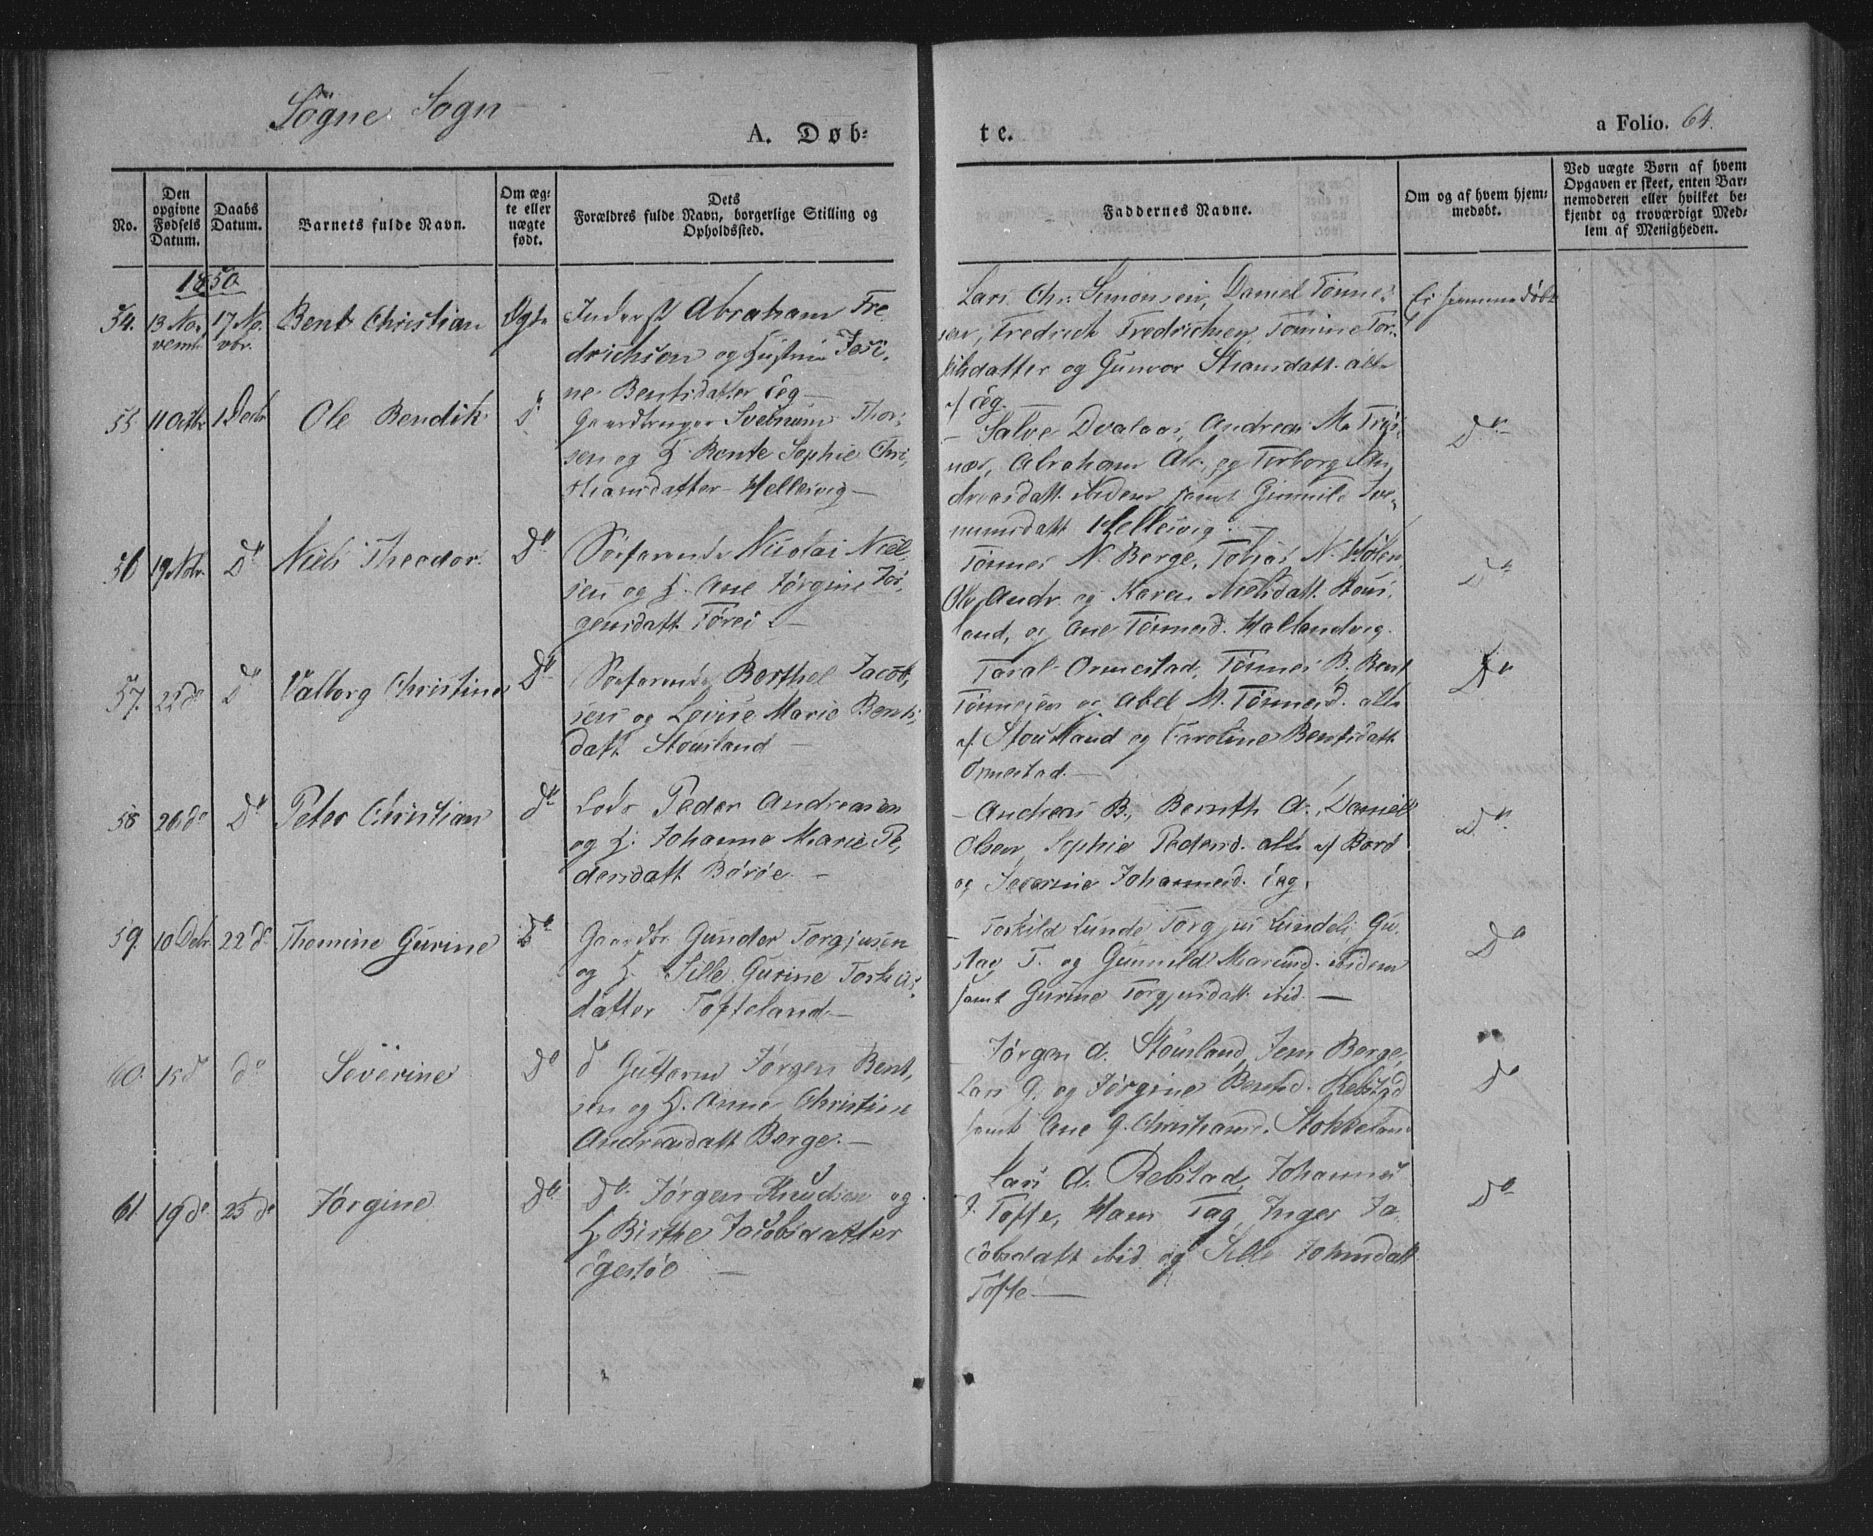 Søgne Sogn
A. Døb-
te.
a Folio. 64.
No.
Den opgivne Fødsels Datum.
Daabs Datum.
Barnets fulde Navn.
Om ægte eller nægte født.
Dets Forældres fulde Navn, borgerlige Stilling og Opholdssted.
Faddernes Navne.
Om og af hvem hjemmedøbt.
Ved uægte Børn af hvem Opgaven er skeet, enten Barnemoderen eller hvilket bekjendt og troværdigt Medlem af Menigheden.
1850
54. 13 Novembr 17 Novbr. Bent Christian Ægte
Inderst Abraham Fre
drichsen og Hustrue Josi,
ne Bentsdatter Eeg —
Lars Chr. Simonsen, Daniel Tønne-
sen, Fredrick Fredrichsen, Tomine Tor-
kildsdatter og Gunvor Stiansdatt. alle
af Eeg. —
Ei hjemmedøbt
55 11 Octbr 1 Decbr Ole Bendik Do
Gaardbruger Svenum Thor-
sen og H. Bente Sophie Chri,
stiansdatter Hellesvig —
— Salve Dvalaas, Andreas M.
Abraham A. og Torborg An,
dreasdatt. ibidem samt Gunnild Sve-
numsdatt Hellesvig. —
Do
56 19 Nobr. Do Niels Theodor. Do
Søefarende Nicolai Niel-
sen og H. Ane Jørgine Jør,
gensdatt Tørres. —
Tønnes N. Berge, Tobias N. Holen,
Ole Andr. og Karen Nielsdatt. Stous-
land, og Ane Tønnesd. Hallandvig.
Do
57. 22 do Do Valborg Christine Do
Søefarende Berthel Jacob,
sen og Lovise Marie Bents,
datt Stousland —
Taral Ormestad, Tønnes B. Bent
Tønnesen og Abel M. Tønnesd. alle
af Stousland og Caroline Bentsdatt
Ormestad. —
Do
58 26 do Do Peter Christian do
Lods Peder Andreasen
og H. Johanne Marie Pe,
dersdatt Borøe. —
— Andreas B., Bernth A., Daniel
Olsen, Sophie Pedersd. alle af Borø
og Severine Johannesd. Eeg.
Do
59. 10 Debr. 22 do Thomine Gurine Do
Gaardbr Gunder Torgjusen
og H. Sille Gurine Torkils,
datter Tofteland. —
— Torkild Lunde Torgjus Lundeli Gu,
stav T. og Gunnild Mariusd. ibidem
samt Gurine Torgjusdatt. ibid. —
Do
60. 15 do do Severine Do
do Guttorm Jørgen Bent,
sen og H. Anne Christine
Andreasdatt Berge. —
Jørgen A. Stousland, Jens Berge,
Lars G. og Jørgine Bentsd. Rebstad
samt Ane G. Christiansd. Stokkeland
Do
61. 19 do 25 do Jørgine Do
Do. Jørgen Knudsen og
H Birthe Jacobsdatter
Egestøl —
Lars A. Rebstad, Johannes
J. Tofte, Hans Tag, Inger Ja-
cobsdatt ibid. og Sille Johnsdatt
Tofte —
Do